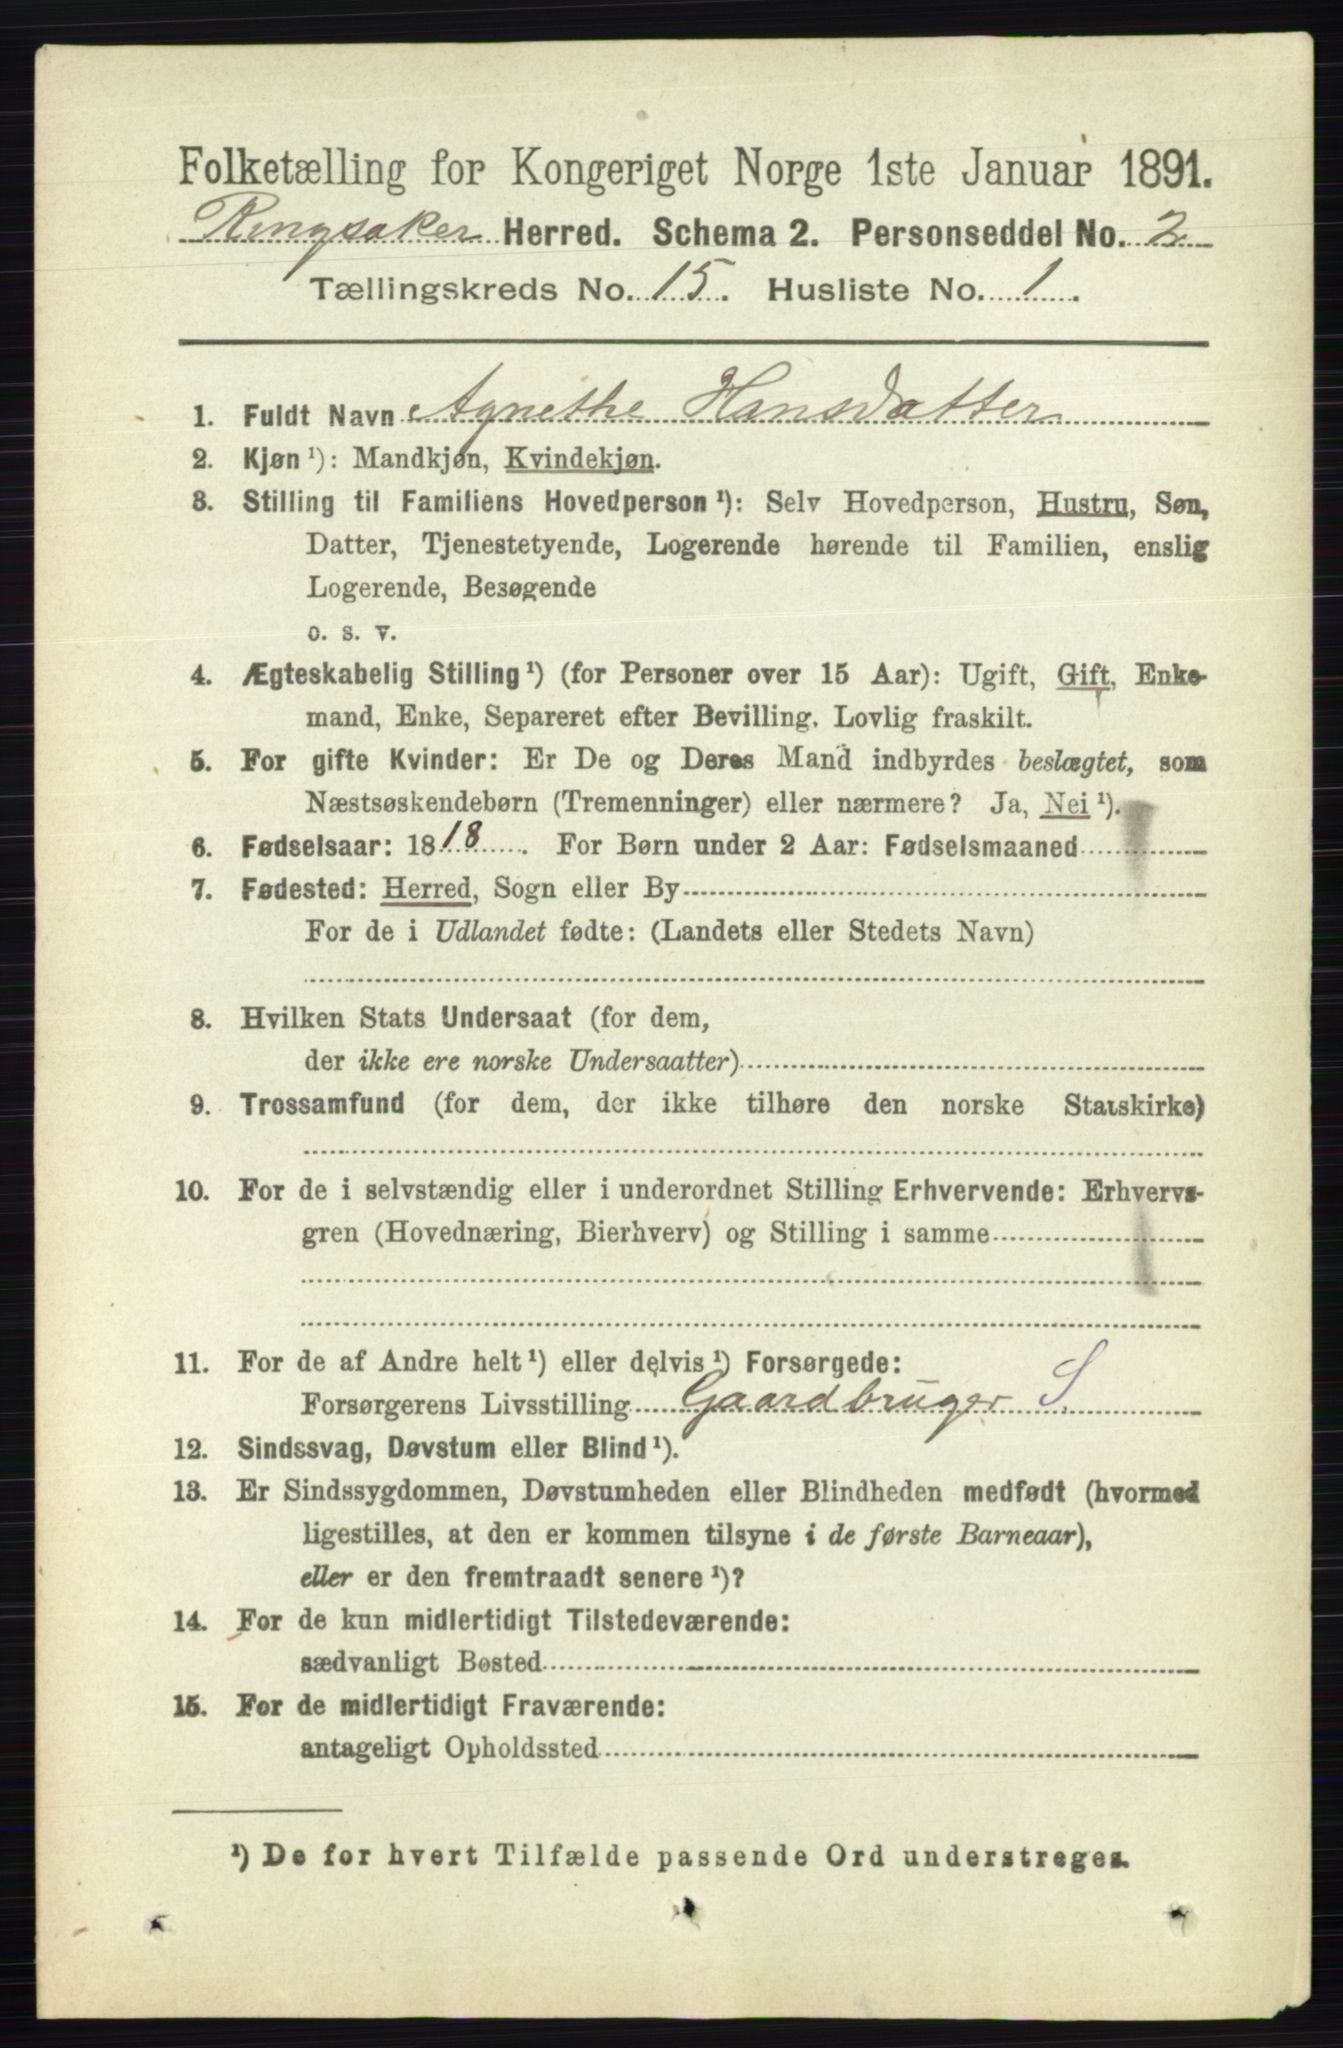 Folketælling for Kongeriget Norge 1ste Januar 1891.
Ringsaker Herred. Schema 2. Personseddel No. 2
Tællingskreds No. 15. Husliste No. 1.
1. Fuldt Navn Agnethe Hansdatter
2. Kjøn¹): Mandkjøn, Kvindekjøn.
3. Stilling til Familiens Hovedperson¹): Selv Hovedperson, Hustru, Søn,
Datter, Tjenestetyende, Logerende hørende til Familien, enslig
Logerende, Besøgende
o. s. v.
4. Ægteskabelig Stilling¹) (for Personer over 15 Aar): Ugift, Gift, Enke-
mand, Enke, Separeret efter Bevilling. Lovlig fraskilt.
5. For gifte Kvinder: Er De og Deres Mand indbyrdes beslægtet, som
Næstsøskendebørn (Tremenninger) eller nærmere? Ja, Nei¹).
6. Fødselsaar: 1818. For Børn under 2 Aar: Fødselsmaaned
7. Fødested: Herred, Sogn eller By
For de i Udlandet fødte: (Landets eller Stedets Navn)
8. Hvilken Stats Undersaat (for dem,
der ikke ere norske Undersaatter)
9. Trossamfund (for dem, der ikke tilhøre den norske Statskirke)
10. For de i selvstændig eller i underordnet Stilling Erhvervende: Erhvervs-
gren (Hovednæring, Bierhverv) og Stilling i samme
11. For de af Andre helt¹) eller delvis¹) Forsørgede:
Forsørgerens Livsstilling Gaardbruger S.
12. Sindssvag, Døvstum eller Blind¹).
13. Er Sindssygdommen, Døvstumheden eller Blindheden medfødt (hvormed
ligestilles, at den er kommen tilsyne i de første Barneaar),
eller er den fremtraadt senere¹)?
14. For de kun midlertidigt Tilstedeværende:
sædvanligt Bosted
15. For de midlertidigt Fraværende:
antageligt Opholdssted
¹) De for hvert Tilfælde passende Ord understreges.